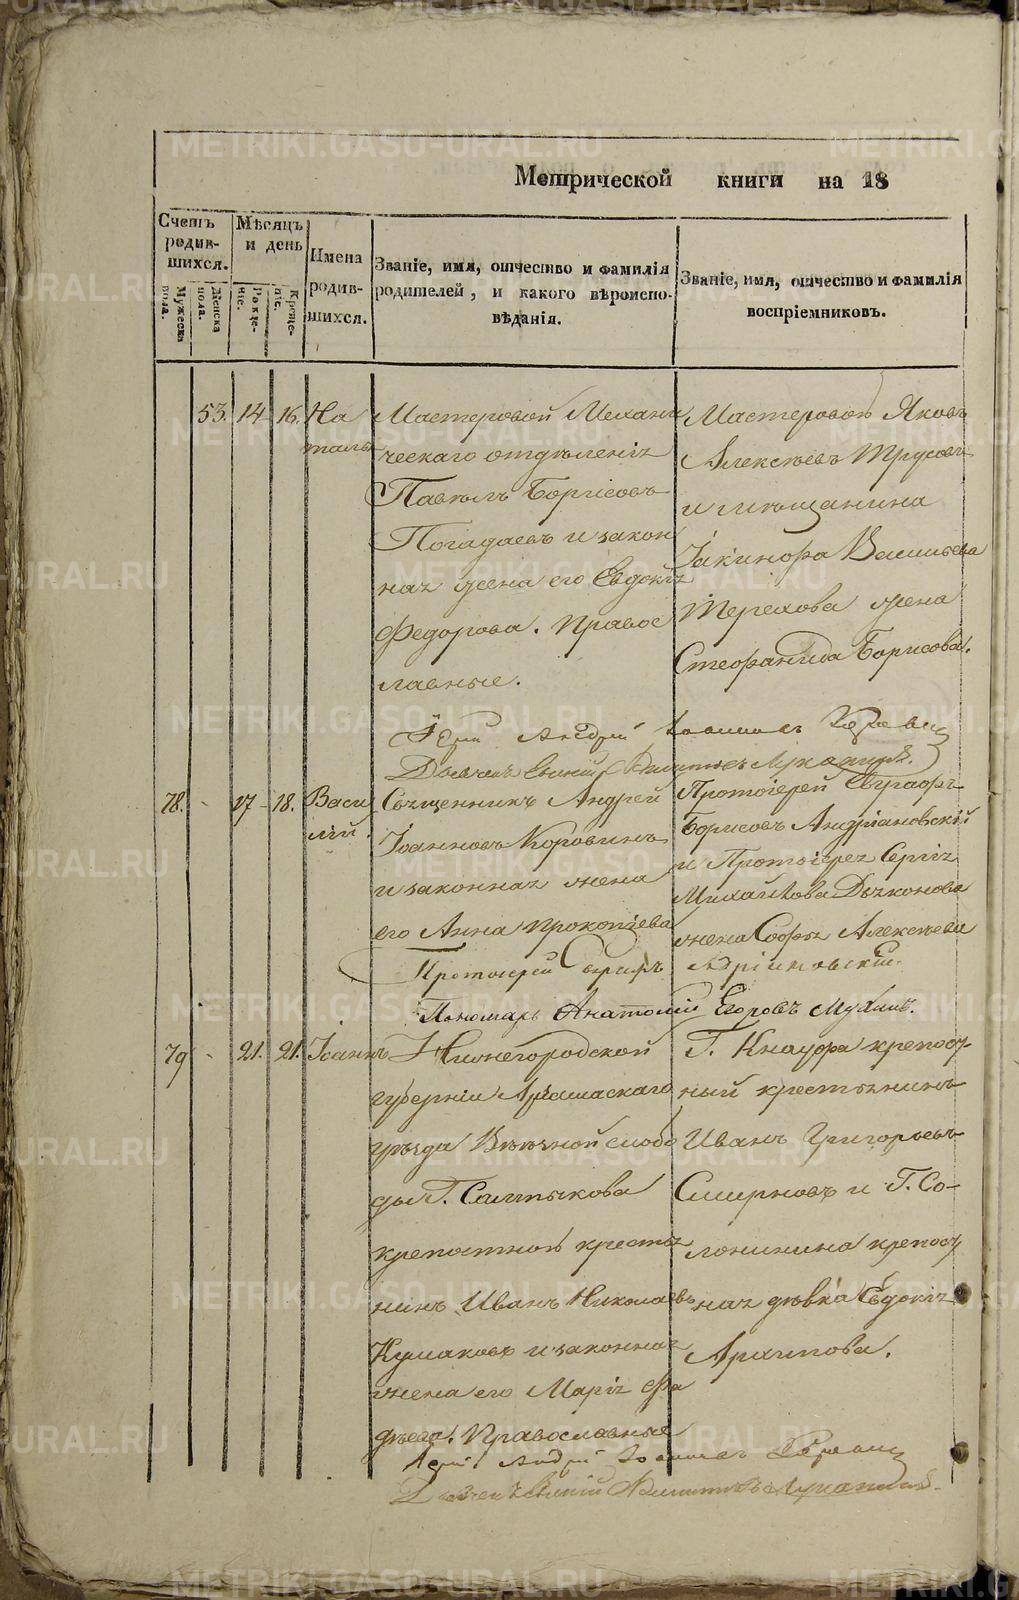 Метрической книги на 18
Счетъ родив-шихся.
Мужеска пола.
Женска пола.
Мѣсяцъ и день
Рожде-ніе.
Креще-ніе.
Имена родив-шихся.
Званіе, имя, отчество и фамилія
родителей, и какого вѣроиспо-
вѣданія.
Званіе, имя, отчество и фамилія
воспріемниковъ.
53. 14 16. На
талья
Мастеровой Механи
ческаго отдѣленія
Павелъ Борисовъ
Погадаевъ и закон
ная жена его Евдокія
Федорова. Правос
лавные.
Мастеровой Яковъ
Алексѣевъ Трусовъ
и мѣщанина
Іакинфа Васильева
Терехова жена
Стефанида Борисова.
Іерей Андрей Іоанновъ Коровинъ
78. - 17 - 18. Васи
лій.
Священникъ Андрей
Іоанновъ Коровинъ
и законная жена
его Анна Прокопіева
Протоіерей Евграфъ
Борисовъ Андріановскій
и Протоіерея Сергія
Михайлова Дьяконова
жена Софья Алексѣева
Протоіерей Евграфъ Адріановскій.
Пономарь Анатолій Егоровъ Мухинъ.
79 - 21. 21. Іоаннъ
Нижнегородской
губерніи Арзамаскаго
уѣзда Выѣзной слобо
ды Г. Салтыкова
крепостной кресть
нинъ Иванъ Николаевъ
Кумаковъ и законная
жена его Марія Фа
дѣева. Православные
Г. Кнауфа крепост
ный крестьянинъ
Иванъ Григорьевъ
Смирновъ и Г. Со-
ломирина крепост
ная дѣвка Евдокія
Архипова.
Іерей Андрей Іоанновъ Коровинъ